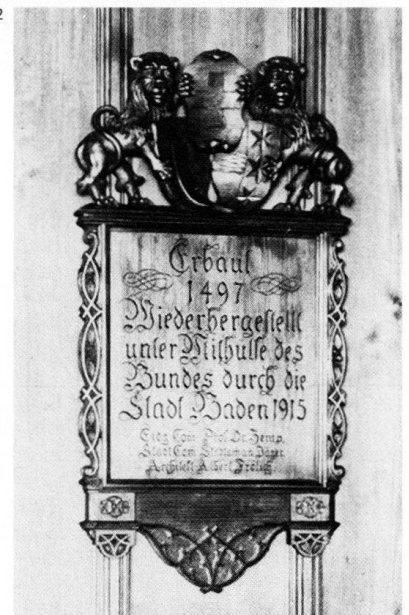 2
Erbaut
1497
Wiederhergestellt
unter Mithülfe des
Bundes durch die
Stadt Baden 1915
Eidg. Com. Prof. Dr. Zemp.
Stadt Com. Stadtamman Jäger
Architekt Albert Frölich.